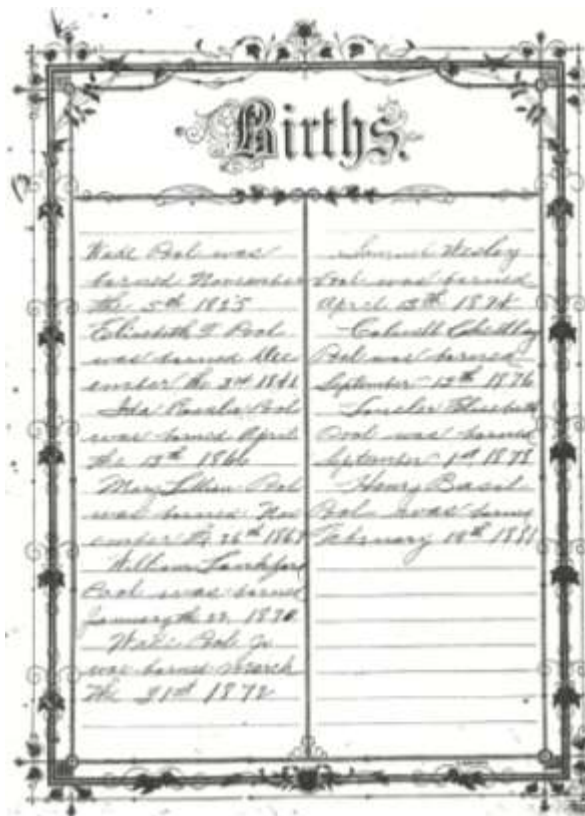 Births.
Wade Pool was
borned November
the 5th 1835
Elisabeth F Pool
was borned Dec
ember the 3rd 1841
Ida Pool
was borned April
the 13th 1866
Mary Lillian Pool
was borned Nov
ember the 26th
William Lankford
Pool was borned
January the 1870
Wade Pool Jr
was borned March
the 21st 1872
Samuel Wesley
Pool was borned
April 13th 1874
Pool was borned
September 13th 1876
Elisabeth
Pool was borned
September 1st 1878
Henry Basil
Pool was borny
February 1881